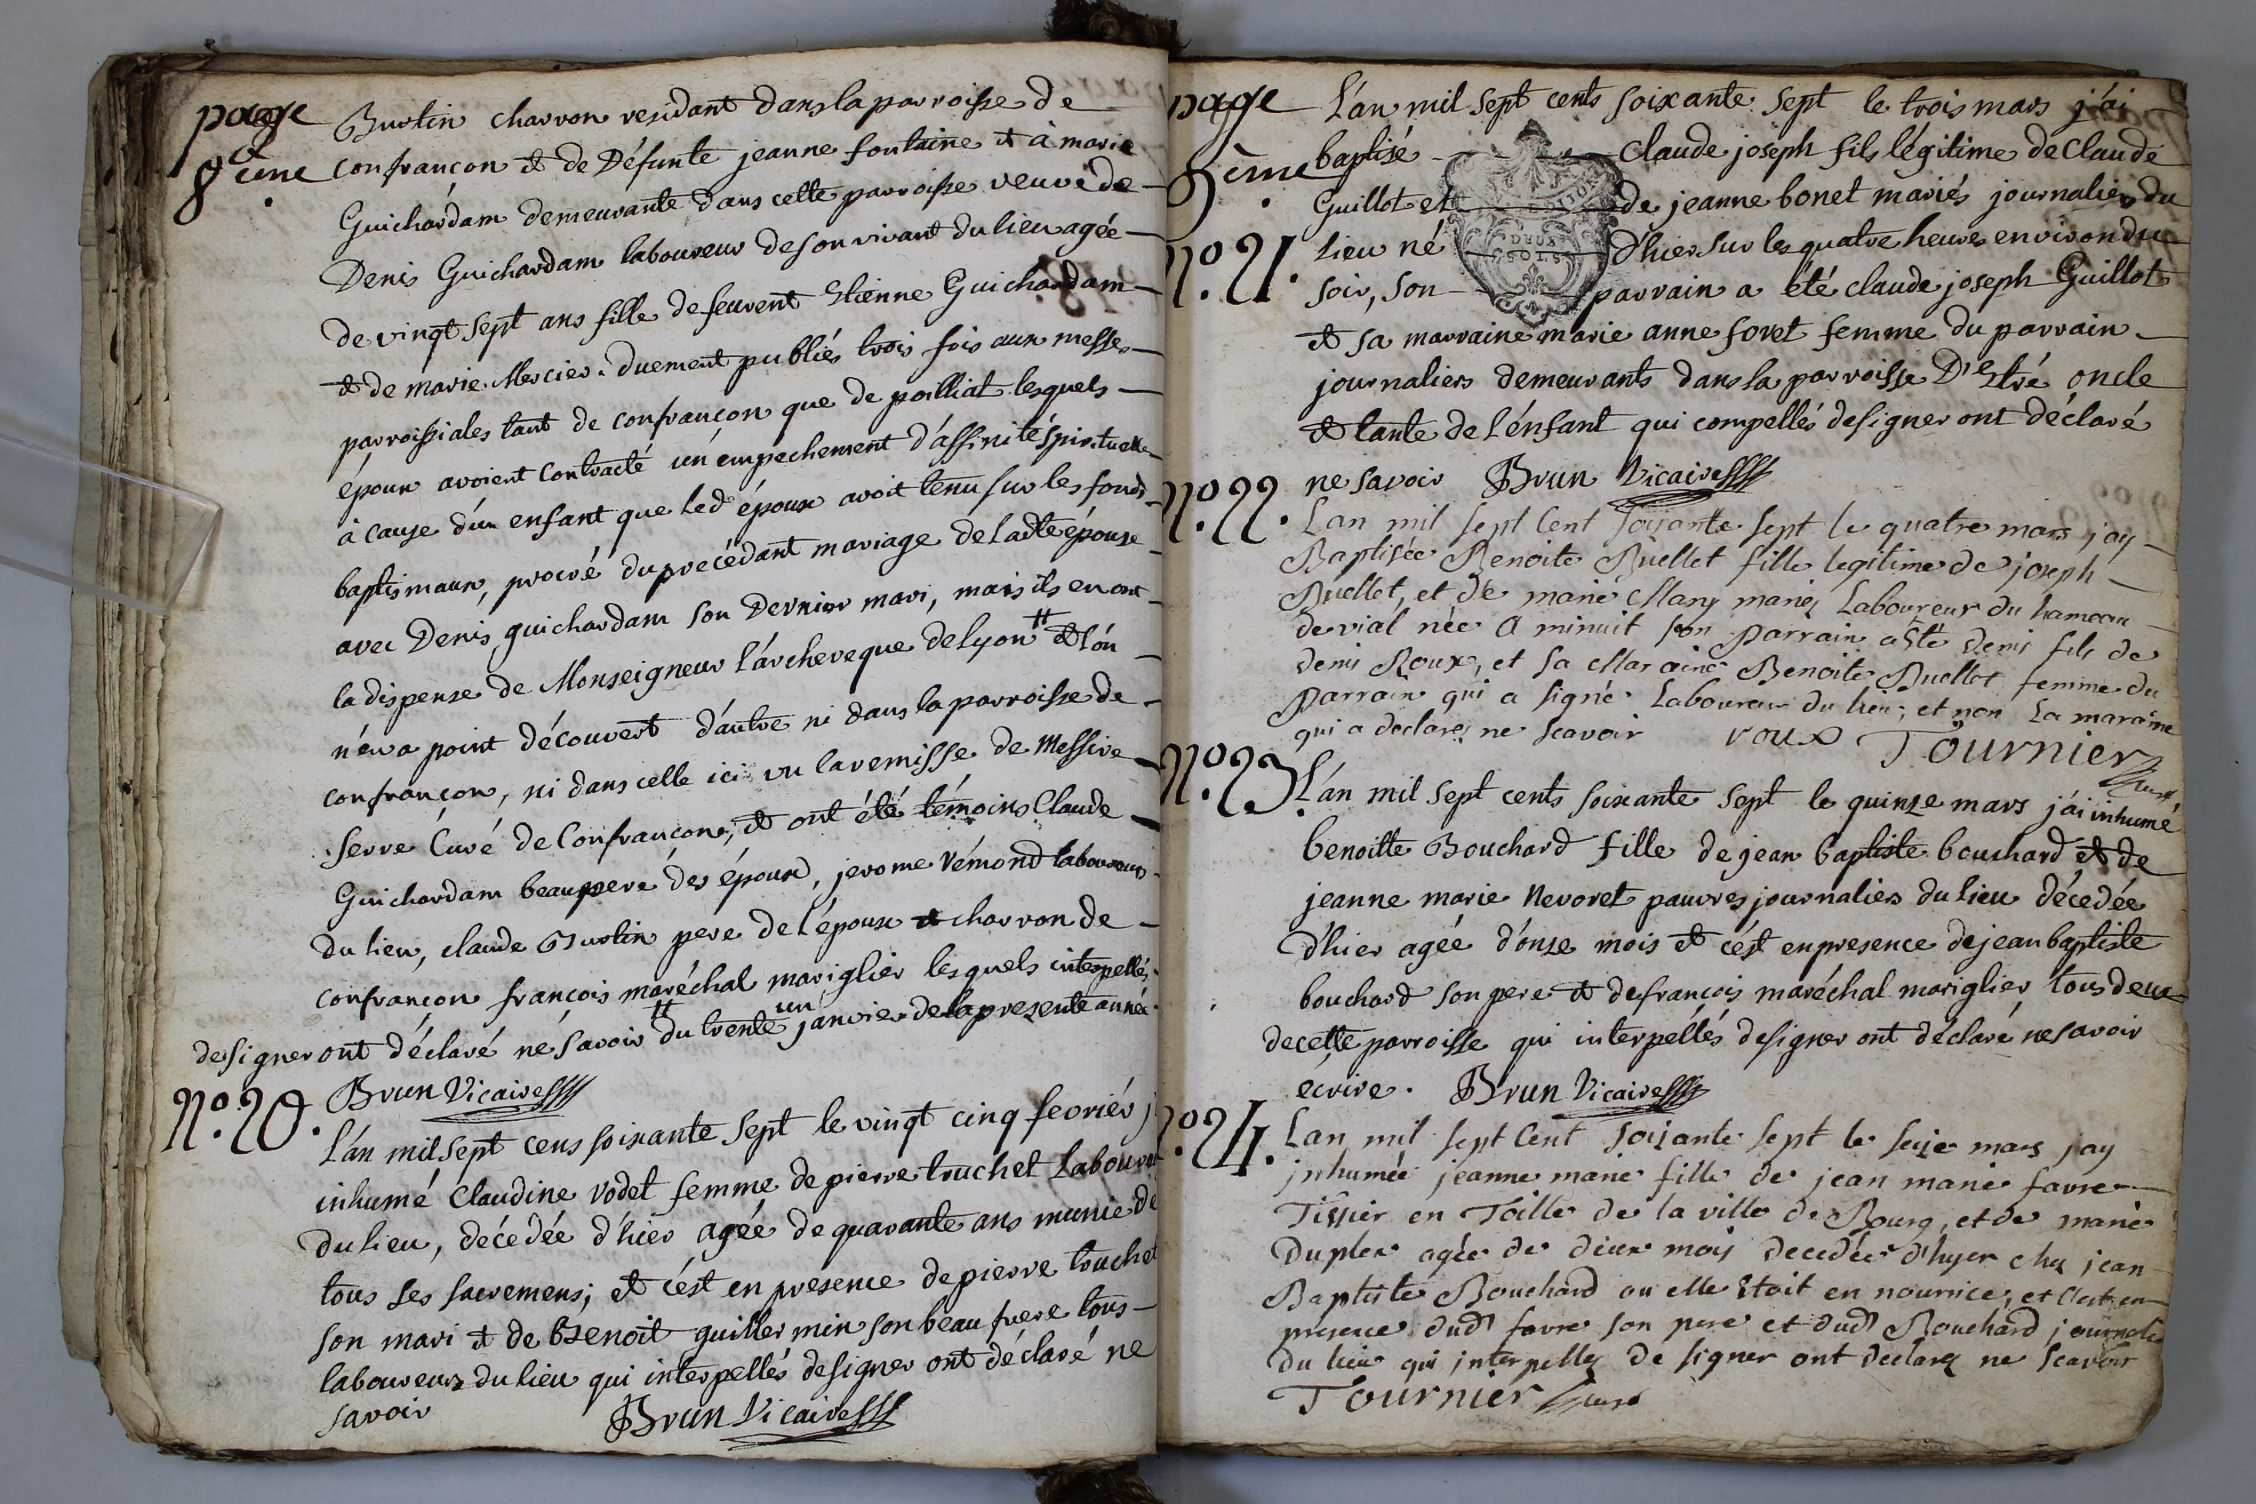 page
8eme.
Burtin charron residant dans la parroisse de
confrançon et de Défunte jeanne fontaine et à marie
Guichardam demeurante dans cette parroisse veuve de
Denis Guichardam laboureur de son vivant du lieu agée
de vingt sept ans fille de feurent Etienne Guichardam
et de marie Mercier. duement publiés trois fois aux messes
parroissiales tant de confrançon que de polliat lesquels
époux avoient contracté un émpechement d'affinité spirituelle
à cause d'un enfant que led époux avoit tenu sur les fonds
baptismaux, procré du precédant mariage de ladte épouse
avec Denis guichardam son Dernier mari, mais ils en ont
la dispense de Monseigneur l'archeveque de Lyon # et l'on
n'en a point découvert d'autre ni dans la parroisse de
confrançon, ni dans celle ici vu la remisse de Messire
Serre Curé de Confrançon, et ont été témoins Claude
Guichardam beaupere des époux, jerome Vémond laboureurs
du lieu, claude Burtin pere de l'époux et charron de
confrançon françois maréchal mariglier lesquels interpellés
de signer ont déclaré ne savoir # du trente un janvier de la presente année.
Brun Vicaire
No. 20.
L'an mil sept cens soixante sept le vingt cinq fevriér j
inhumé Claudine vodet femme de pierre truchet Laboureur
du lieu, décédée d'hier agée de quarante ans munie de
tous ses sacremens; et c'est en presence de pierre truchet
son mari et de Benoit guillermin son beau frere tous
laboureurs du lieu qui interpellés de signer ont déclaré ne
savoir Brun Vicaire
page
9ème.
No. 21.
L'an mil sept cents soixante sept le trois mars j'ai
baptisé Claude joseph fils légitime de Claude
Guillot et de jeanne bonet mariés journaliers du
lieu né d'hier sur les quatre heures environ du
soir, son parrain a été claude joseph Guillot
DEUX
SOLS
et sa marraine marie anne foret femme du parrain
journaliers demeurants dans la parroisse D'Etré oncle
et tante de l'énfant qui compellés de signer ont déclaré
ne savoir Brun Vicaire
No. 22.
Lan mil sept Cent soixante sept le quatre mars jay
Baptisée Benoite Buellet fille legitime de joseph
Buellet, et de marie Mary mariez Laboureur du hameau
de vial née a minuit son parrain a Eté denis fils de
denis Roux, et sa Maraine Benoite Buellet femme du
parrain qui a signé Laboureur du lieu; et non La maraine
qui a declaré ne scavoir roux Tournier curé
No. 23.
L'an mil sept cents soixante sept le quinze mars j'ai inhumé
benoitte Bouchard fille de jean baptiste bouchard et de
jeanne marie Nevoret pauvres journaliers du lieu décedée
d'hier agée d'onze mois et c'ést en presence de jean baptiste
bouchard son pere et de françois maréchal mariglier tous deux
de cette parroisse qui interpéllés de signer ont déclaré ne savoir
écrire. Brun Vicaire
No. 24.
Lan mil sept Cent soixante sept le seize mars jay
jnhumée jeanne marie fille de jean marie favre
Tissier en Toille de la ville de Bourg, et de marie
Duplex agée de deux mois decedée d'hyer chez jean
Baptiste Bouchard ou elle Etoit en nourrice, et C'est en
presence dud favre son pere et dud Bouchard journalier
du lieu qui interpellez de signer ont declarez ne scavoir
Tournier curé